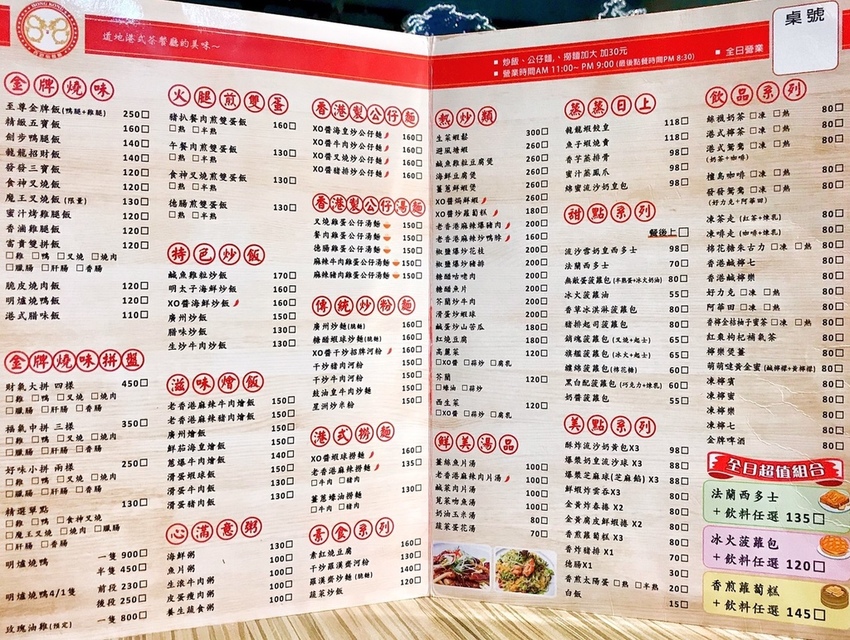 HONG KONG
道地港式茶餐廳的美味～
金牌燒味
至尊金牌飯(鴨腿+雞腿) 250□
精緻五寶飯 160□
劊步鴨腿飯 140□
龍龍招財飯 140□
發發三寶飯 120□
食神叉燒飯 120□
魔王叉燒飯(限量) 130□
蜜汁烤雞腿飯 120□
香滷雞腿飯 120□
富貴雙拼飯 120□
□雞 □鴨 □叉燒 □燒肉
□臘腸 □肝腸 □香腸
脆皮燒肉飯 120□
明爐燒鴨飯 120□
港式腊味飯 110□
金牌燒味拼盤
財氣大拼 四樣 450□
□雞 □鴨 □叉燒 □燒肉
□臘腸 □肝腸 □香腸
福氣中拼 三樣 350□
□雞 □鴨 □叉燒 □燒肉
□臘腸 □肝腸 □香腸
好味小拼 兩樣 250□
□雞 □鴨 □叉燒 □燒肉
□臘腸 □肝腸 □香腸
精選單點 130□
□雞 □鴨 □食神叉燒
□魔王叉燒 □燒肉 □臘腸
□肝腸 □香腸
明爐燒鴨 一隻 900□
半隻 450□
明爐燒鴨4/1隻 前段 230□
後段 250□
玫瑰油雞(預定) 一隻 800□
火腿煎雙蛋
豬扒餐肉煎雙蛋飯 160□
□熟 □半熟
午餐肉煎雙蛋飯 130□
□熟 □半熟
食神叉燒煎雙蛋飯 130□
□熟 □半熟
德腸煎雙蛋飯 130□
□熟 □半熟
特色炒飯
鹹魚雞粒炒飯 170□
明太子海鮮炒飯 160□
XO醬海鮮炒飯 160□
廣州炒飯 150□
腊味炒飯 130□
生炒牛肉炒飯 130□
滋味燴飯
老香港麻辣牛肉燴飯 150□
老香港麻辣豬肉燴飯 150□
廣州燴飯 150□
鮮茄海皇燴飯 150□
蔥爆牛肉燴飯 140□
滑蛋蝦球飯 150□
滑蛋牛肉飯 130□
滑蛋豬肉飯 130□
心滿意粥
海鮮粥 130□
魚片粥 100□
生滾牛肉粥 100□
皮蛋瘦肉粥 100□
養生蔬食粥 100□
香港製公仔麵
XO醬海皇炒公仔麵 160□
XO醬牛肉炒公仔麵 160□
XO醬叉燒炒公仔麵 160□
XO醬豬排炒公仔麵 160□
香港製公仔湯麵
叉燒雞蛋公仔湯麵 150□
餐肉雞蛋公仔湯麵 150□
德腸雞蛋公仔湯麵 150□
麻辣牛肉雞蛋公仔湯麵 150□
麻辣豬肉雞蛋公仔湯麵 150□
傳統炒粉麵
廣州炒麵(脆麵) 160□
糖醋蝦球炒麵(脆麵) 160□
XO醬干炒招牌河粉 160□
干炒豬肉河粉 150□
干炒牛肉河粉 150□
豉油皇牛肉炒麵 150□
星洲炒米粉 150□
港式撈麵
XO醬蝦球撈麵 150□
老香港麻辣撈麵 135□
□牛肉 □豬肉
薑蔥蠔油撈麵 130□
□牛肉 □豬肉
素食系列
素紅燒豆腐 130□
干炒羅漢齋河粉 140□
羅漢齋炒麵(脆麵) 140□
蔬菜炒飯 120□
■ 炒飯、公仔麵、撈麵加大 加30元
■ 營業時間AM 11:00~ PM 9:00 (最後點餐時間PM 8:30)
■ 全日營業
桌號
熱炒類
生菜蝦鬆 300□
避風塘蝦 200□
鹹魚雞粒豆腐煲 200□
海鮮豆腐煲 200□
薑蔥鮮蝦煲 200□
XO醬焗鮮蝦 200□
XO醬炒蘿蔔糕 180□
老香港麻辣爆豬肉 200□
老香港麻辣炒鴨胗 200□
椒鹽爆炒花枝 200□
椒鹽爆炒豬排 200□
糖醋咕咾肉 200□
糖醋魚片 200□
芥蘭炒牛肉 200□
滑蛋炒蝦球 200□
鹹蛋炒山苦瓜 180□
紅燒豆腐 180□
高麗菜 120□
□XO醬 □蒜炒 □腐乳
芥蘭 120□
□蠔油 □蒜炒
西生菜 120□
□XO醬 □蒜炒 □腐乳
鮮美湯品
薑絲魚片湯 100□
老香港麻辣肉片湯 100□
鹹菜肉片湯 100□
莧菜吻魚湯 100□
奶油玉米湯 80□
蔬菜蛋花湯 70□
蒸蒸日上
龍龍蝦餃皇 118□
魚子蝦燒賣 118□
香芋蒸排骨 98□
蜜汁蒸鳳爪 98□
綿蜜流沙奶皇包 98□
甜點系列
餐後上□
流沙雪奶皇西多士 98□
法蘭西多士 70□
無敵蛋菠蘿包(半熟蛋+冰火奶油) 80□
冰火菠蘿油 55□
香草冰淇淋菠蘿包 80□
豬排起司菠蘿包 80□
銷魂菠蘿包(叉燒+起士) 65□
旗艦菠蘿包(冰火+起士) 65□
纏綿菠蘿包(棉花糖) 60□
黑白配菠蘿包(巧克力+煉乳) 60□
奶醬菠蘿包 55□
美點系列
酥炸流沙奶黃包X3 98□
爆漿奶皇流沙球 X3 88□
爆漿芝麻球(芝麻餡) X3 88□
鮮蝦炸雲吞 X3 80□
金黃炸春捲 X2 80□
金黃腐皮鮮蝦捲 X2 80□
香煎蘿蔔糕 X3 80□
香炸豬排 X1 70□
德腸X1 30□
香煎太陽蛋 □熟 □半熟 20□
白飯 15□
飲品系列
絲襪奶茶 □凍 □熱 80□
港式檸茶 □凍 □熱 80□
港式鴛鴦 □凍 □熱 80□
(奶茶+咖啡)
檀島咖啡 □凍 □熱 80□
發發鴛鴦 □凍 □熱 80□
(好力克+阿華田)
凍茶走(紅茶+煉乳) 80□
凍啡走(咖啡+煉乳) 80□
棉花糖朱古力 □凍 □熱 80□
香港鹹檸七 80□
香港鹹檸樂 80□
好力克 □凍 □熱 80□
阿華田 □凍 □熱 80□
香檸金桔柚子蜜茶 □凍 □熱 80□
紅棗枸杞補氣茶 80□
檸樂煲薑 80□
萌萌噠黃金蜜(鹹檸檬+黃檸檬) 80□
凍檸賓 80□
凍檸蜜 80□
凍檸樂 80□
凍檸七 80□
金牌啤酒 80□
全日超值組合
法蘭西多士
+飲料任選 135□
冰火菠蘿包
+飲料任選 120□
香煎蘿蔔糕
+飲料任選 145□